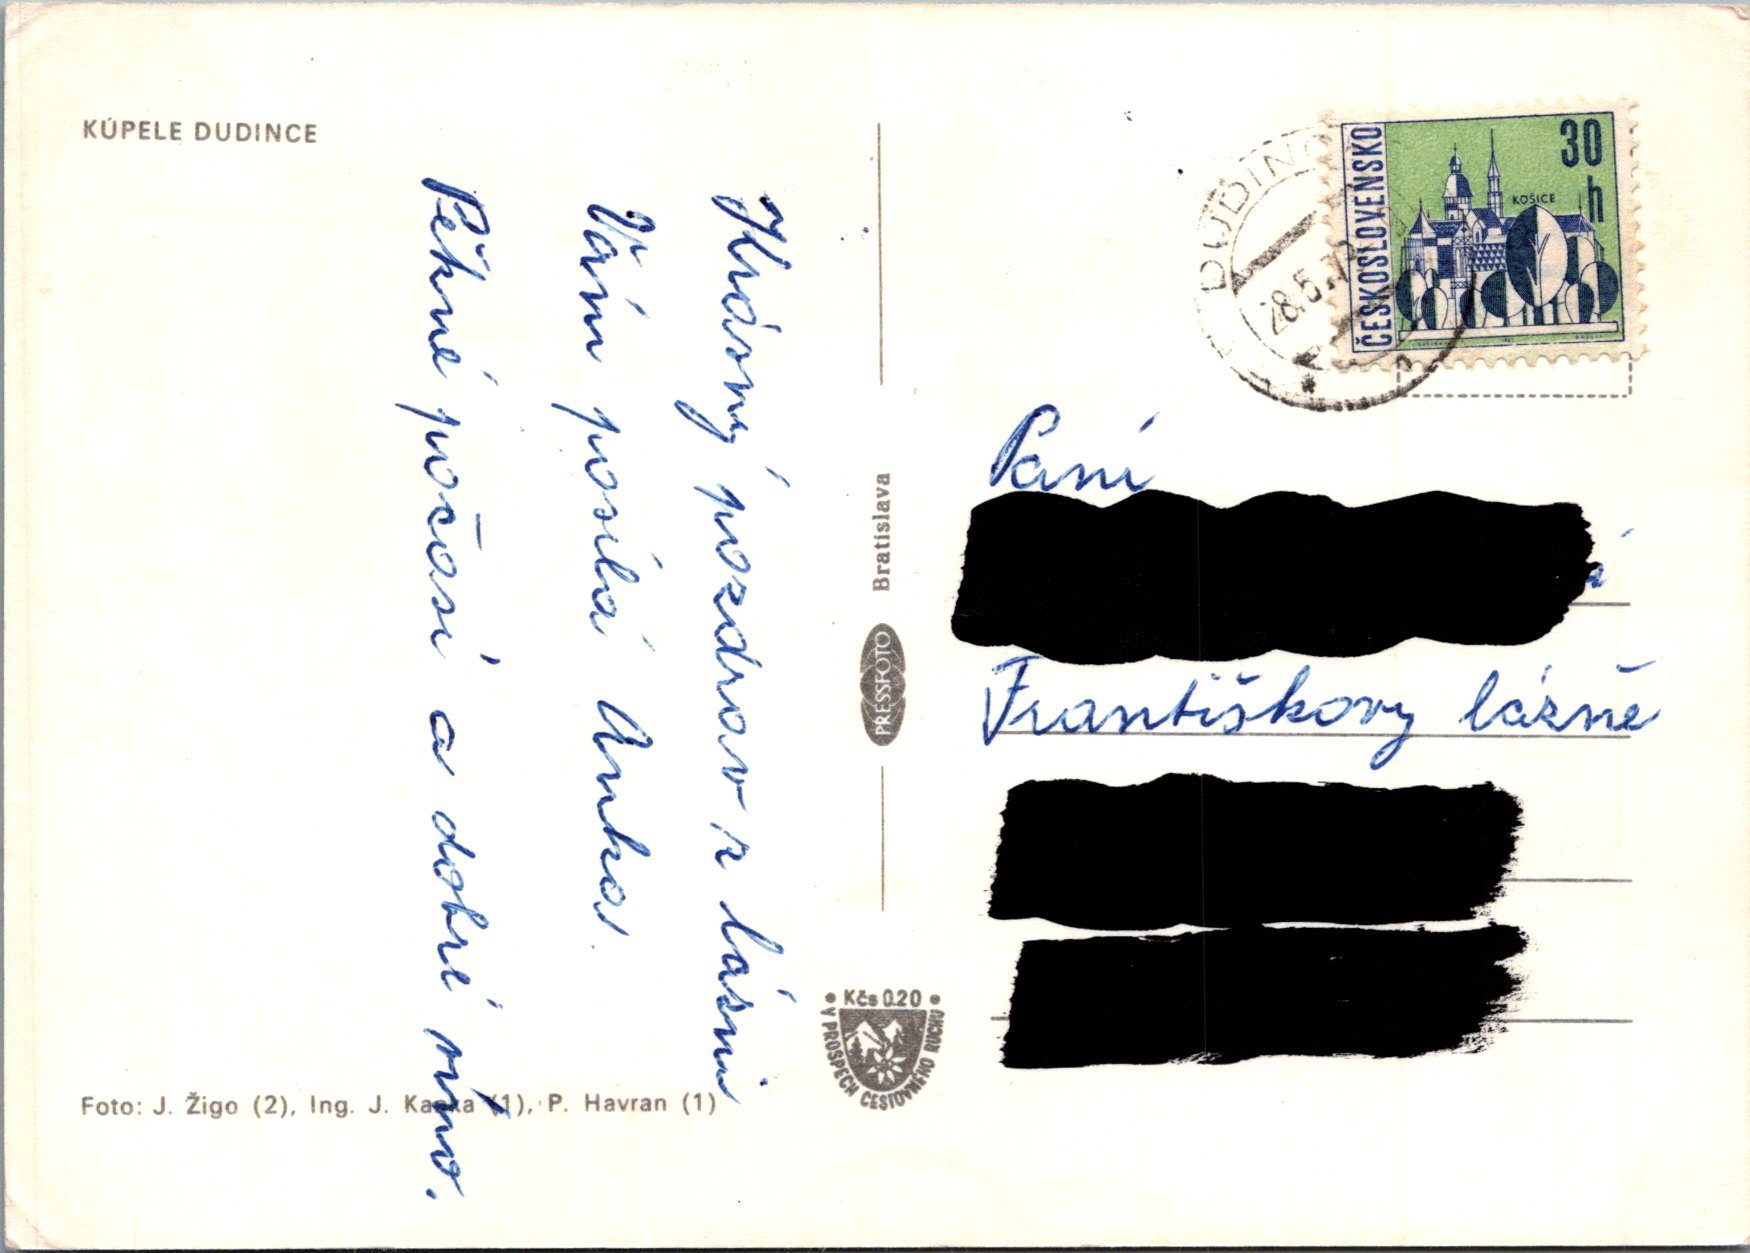 KÚPELE DUDINCE
Krásný pozdrav z lázní
Vám posílá Anka.
Pěkné počasí a dobré víno.
Foto: J. Žigo (2), Ing. J. Kapka (1), P. Havran (1)
PRESSFOTO Bratislava
Kčs 0.20
V PROSPECH CESTOVNÉHO RUCHU
DUDINCE
28.5.
ČESKOSLOVENSKO
30 h
KOŠICE
Paní
Františkovy lázně